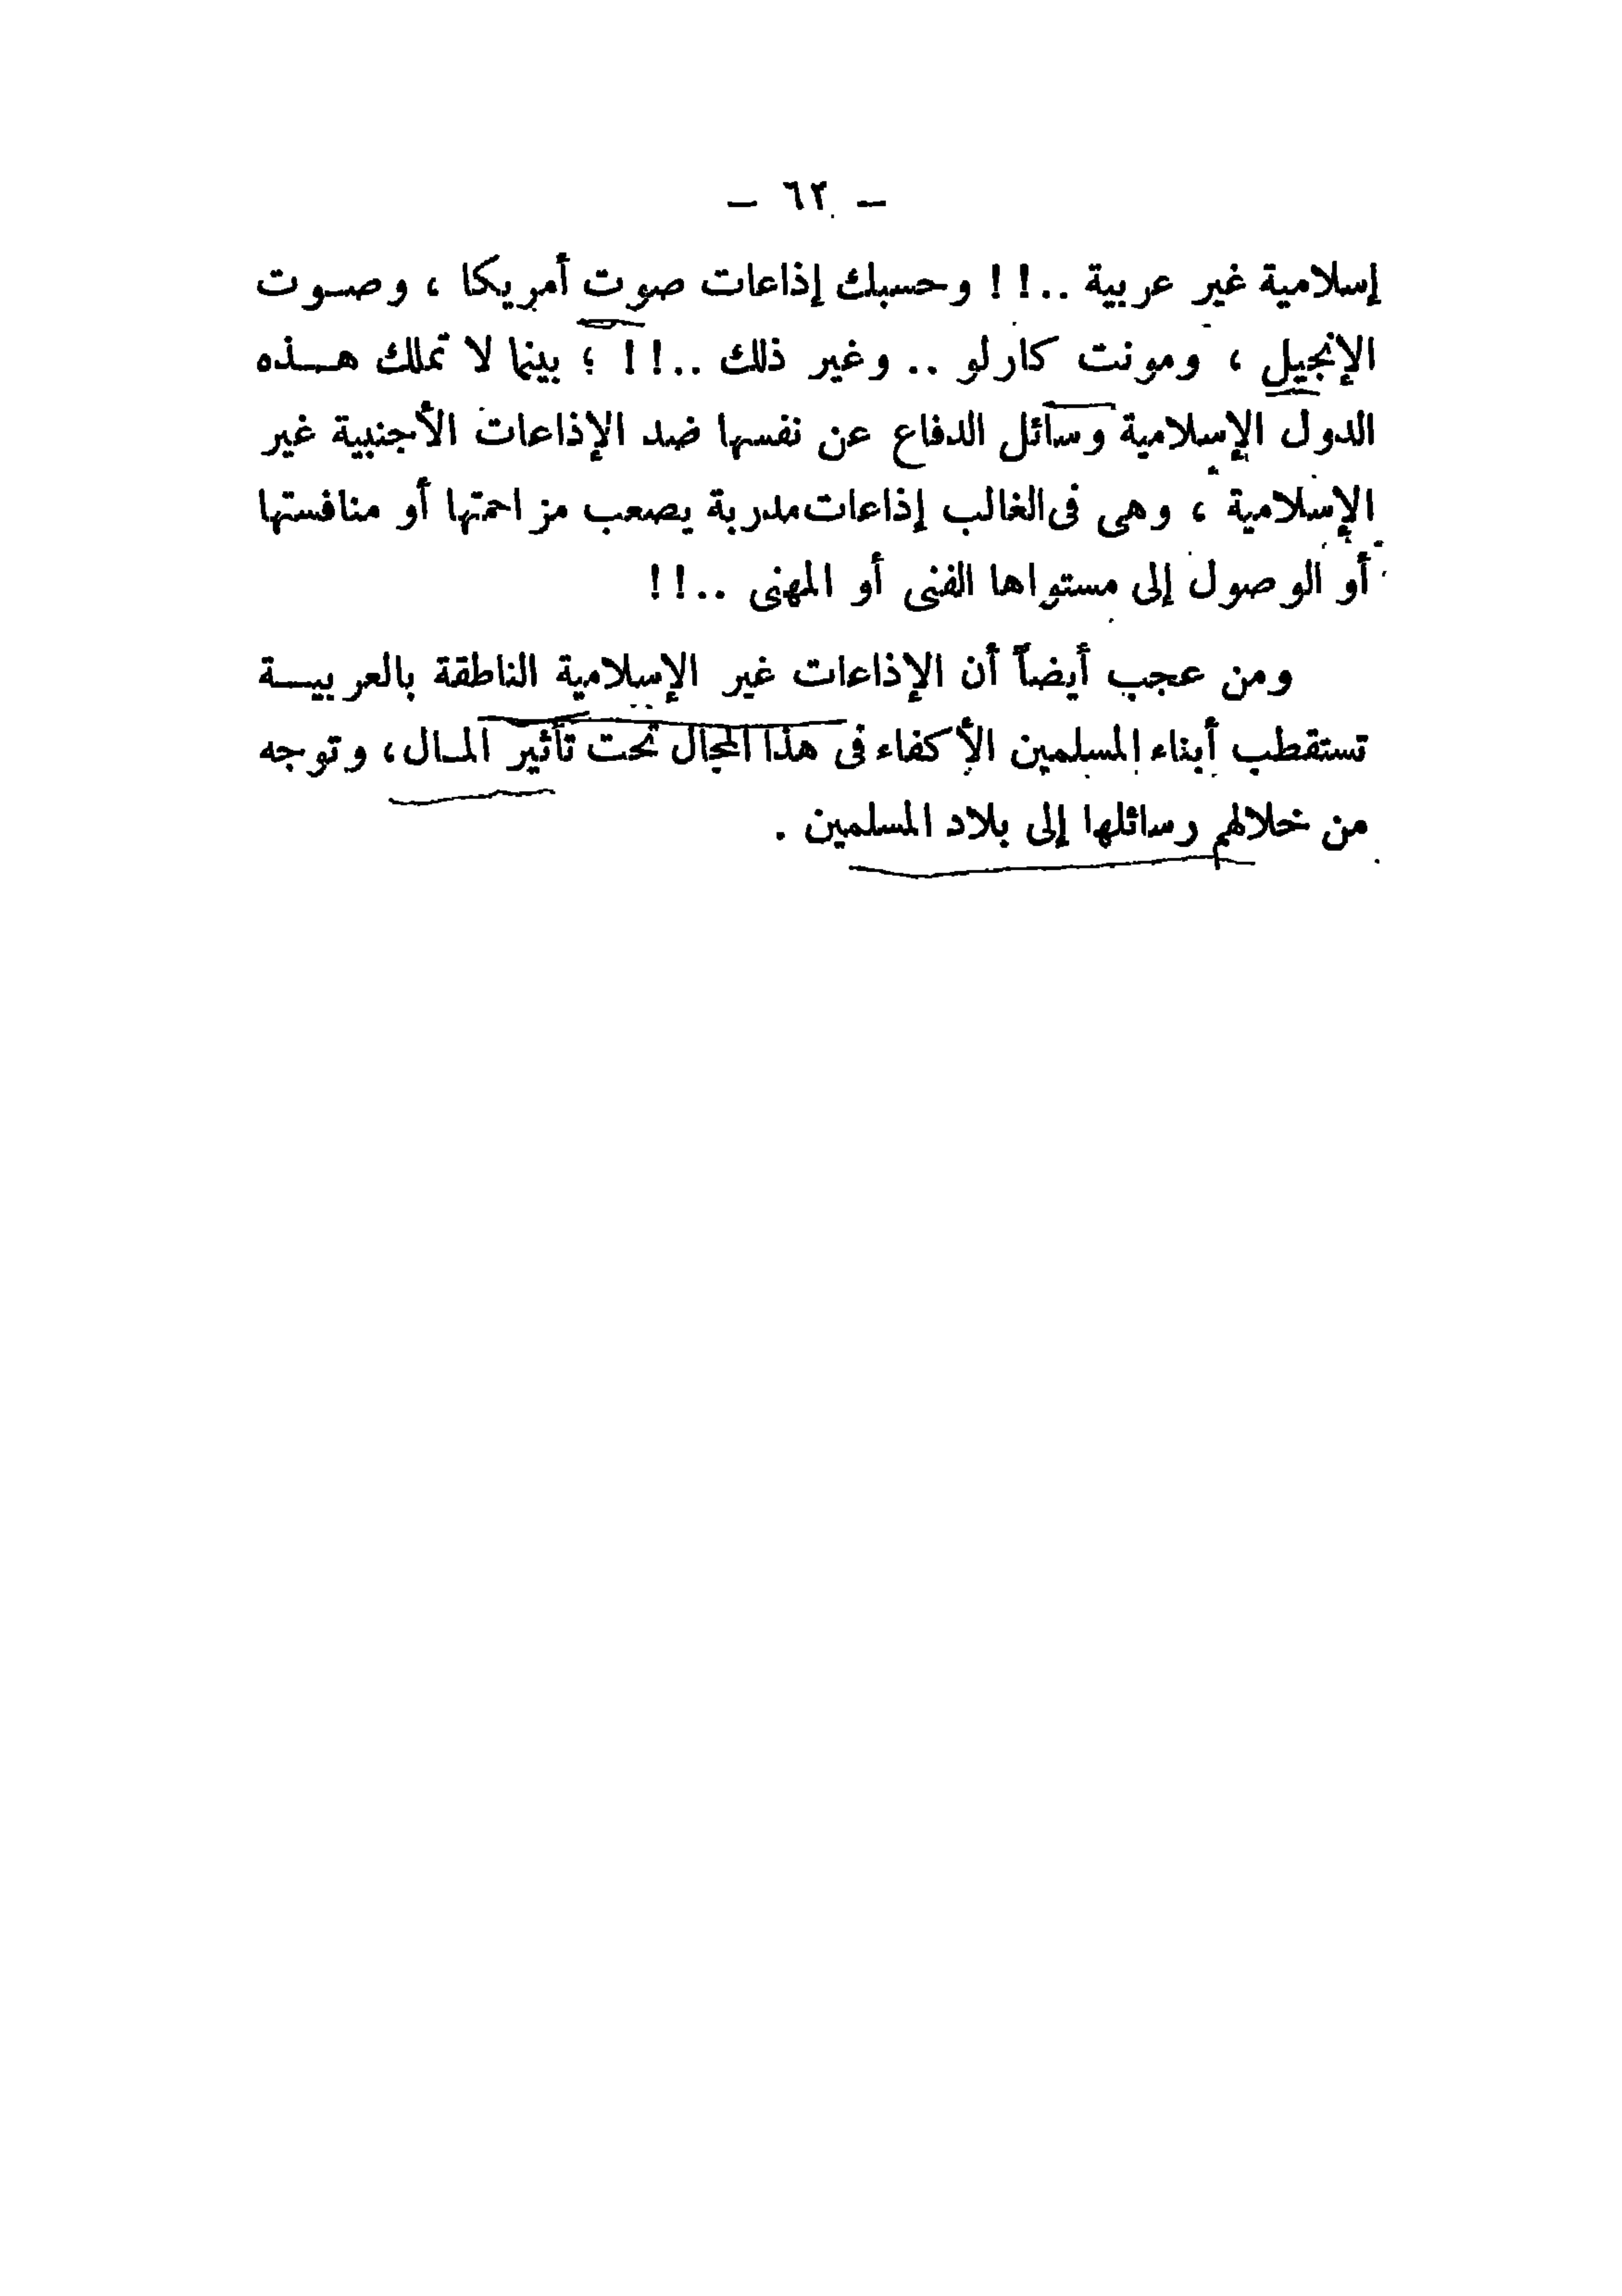 — ٦٢ —
إسلامية غير عربية ..!! وحسبك إذاعات صوت أمريكا ، وصوت
الإنجيل ، ومونت كارلو .. وغير ذلك ..!! ؛ بينما لا تملك هذه
الدول الإسلامية وسائل الدفاع عن نفسها ضد الإذاعات الأجنبية غير
الإسلامية ، وهى فى الغالب إذاعات مدربة يصعب مزاحمتها أو منافستها
أو الوصول إلى مستواها الفنى أو المهنى ..!!
ومن عجب أيضاً أن الإذاعات غير الإسلامية الناطقة بالعربية
تستقطب أبناء المسلمين الأكفاء فى هذا المجال تحت تأثير المال ، وتوجه
من خلالهم رسائلها إلى بلاد المسلمين .